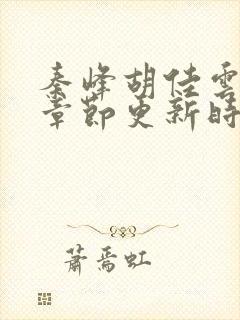 秦峰胡佳雲
章節更新時
蕭焉虹